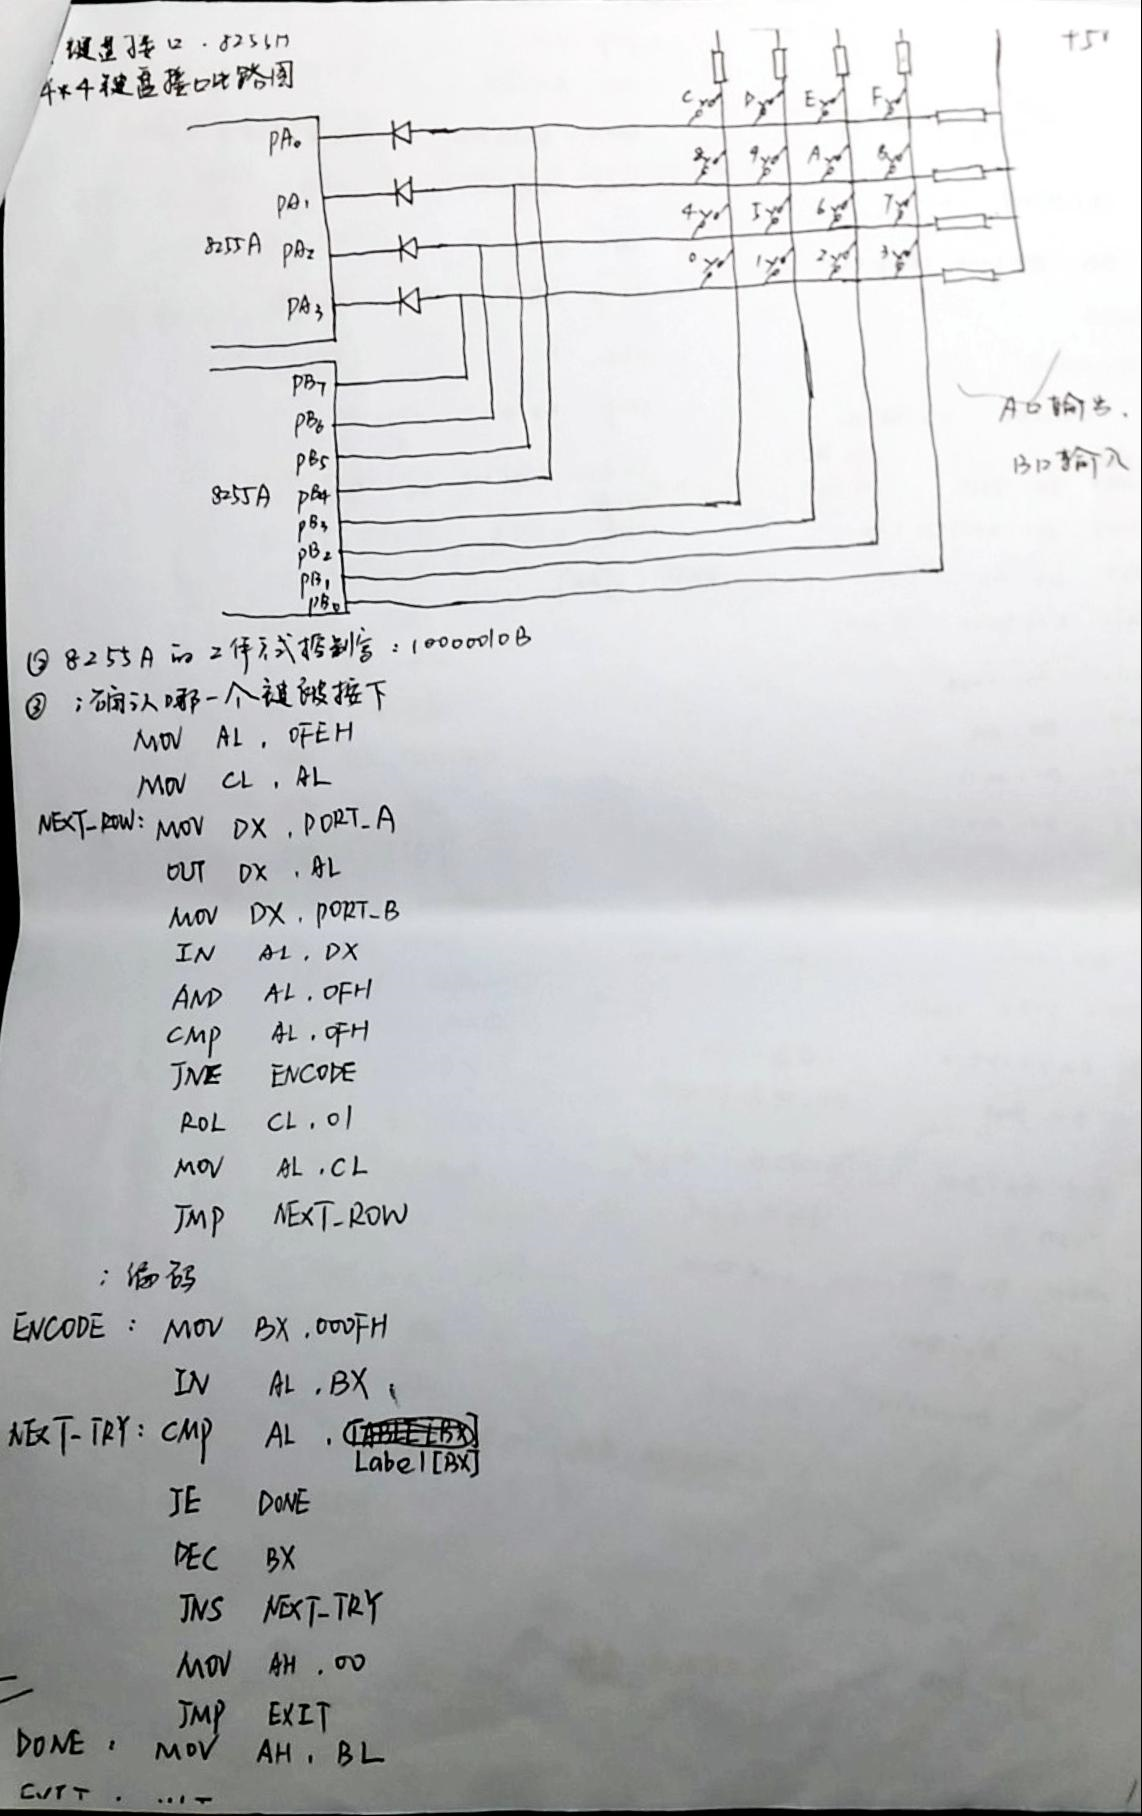 键盘接口.8255A
4*4键盘接口电路图
+5V
C D E F
PA0
8 9 A B
PA1
4 5 6 7
8255A PA2
0 1 2 3
PA3
PB7
A口输出.
PB6
B口输入
PB5
8255A PB4
PB3
PB2
PB1
PB0
① 8255A的工作方式控制字:10000010B
② ;确认哪一个键被按下
MOV AL, 0FEH
MOV CL, AL
NEXT_ROW: MOV DX, PORT_A
OUT DX, AL
MOV DX, PORT_B
IN AL, DX
AND AL, 0FH
CMP AL, 0FH
JNE ENCODE
ROL CL, 01
MOV AL, CL
JMP NEXT_ROW
;编码
ENCODE: MOV BX, 000FH
IN AL, BX
NEXT_TRY: CMP AL,
Label[BX]
JE DONE
DEC BX
JNS NEXT_TRY
MOV AH, 00
JMP EXIT
DONE: MOV AH, BL